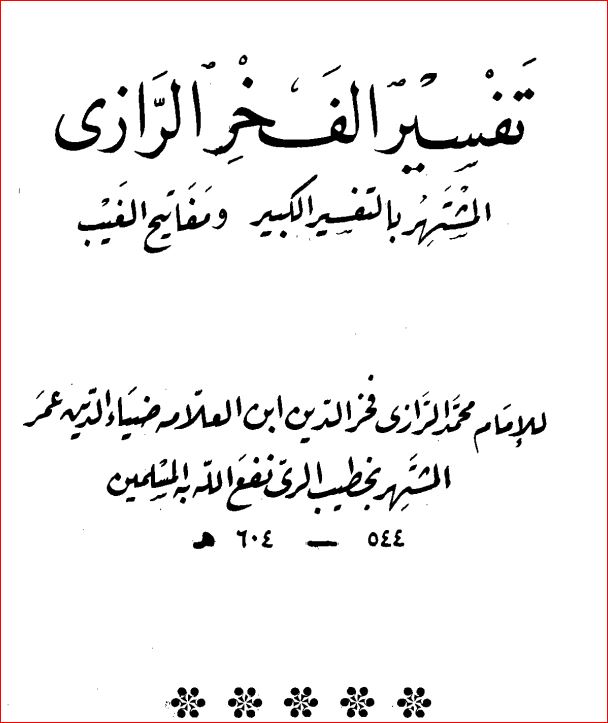 تَفْسِيرُ الفَخْرِ الرَّازِى
المُشْتَهِرُ بالتفسِير الكبير ومَفَاتِيح الغَيْب
للإمَام محمَّد الرَّازى فخر الدّين ابن العلّامه ضيَاء الدّين عمَر
المشتَهر بخطيب الرىّ نفعَ اللّه به المسْلمين
٥٤٤ — ٦٠٤ هـ